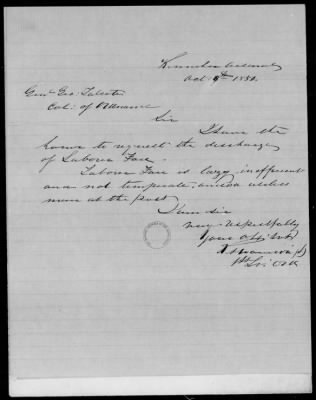 Kennebec Arsenal
Oct. 9th 1850.
Genl Geo. Talcott
Col: of Ordnance
Sir
I have the
honor to request the discharge
of Laborer
Laborer is lazy, inefficient
and not temperate, and is a useless
man at the post.
I am Sir
very respectfully
Your Obt Svt